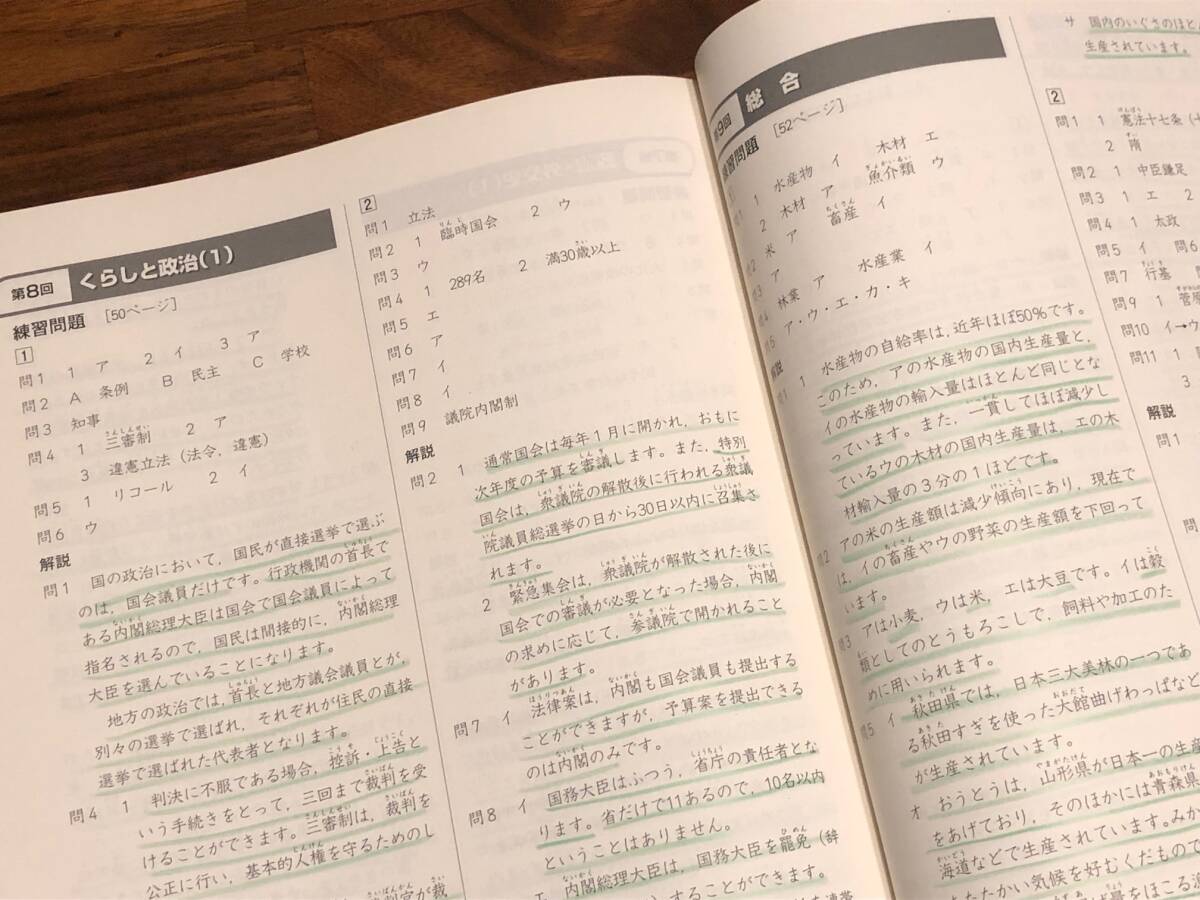 第8回 くらしと政治(1)
練習問題 [50ページ]
1
問1 1 ア 2 イ 3 ア
問2 A 条例 B 民主 C 学校
問3 知事
問4 1 三審制 2 ア
3 違憲立法(法令,違憲)
問5 1 リコール 2 イ
問6 ウ
解説
問1 国の政治において,国民が直接選挙で選ぶ
のは,国会議員だけです。行政機関の首長で
ある内閣総理大臣は国会で国会議員によって
指名されるので,国民は間接的に,内閣総理
大臣を選んでいることになります。
地方の政治では,首長と地方議会議員とが,
別々の選挙で選ばれ,それぞれが住民の直接
選挙で選ばれた代表者となります。
問4 1 判決に不服である場合,控訴・上告と
いう手続きをとって,三回まで裁判を受
けることができます。三審制は,裁判を
公正に行い,基本的人権を守るためのし
2
問1 立法
問2 1 臨時国会 2 ウ
問3 ウ
問4 1 289名 2 満30歳以上
問5 エ
問6 ア
問7 イ
問8 イ
問9 議院内閣制
解説
問2 1 通常国会は毎年1月に開かれ,おもに
次年度の予算を審議します。また,特別
国会は,衆議院の解散後に行われる衆議
院議員総選挙の日から30日以内に召集さ
れます。
2 緊急集会は,衆議院が解散された後に
国会での審議が必要となった場合,内閣
の求めに応じて,参議院で開かれること
があります。
問7 イ 法律案は,内閣も国会議員も提出する
ことができますが,予算案を提出できる
のは内閣のみです。
問8 イ 国務大臣はふつう,省庁の責任者とな
ります。省だけで11あるので,10名以内
ということはありません。
エ 内閣総理大臣は,国務大臣を罷免(辞
することができます。
第9回 総合
練習問題 [52ページ]
1 水産物 イ 木材 エ
2 木材 ア 魚介類 ウ
米 ア 畜産 イ
ア
林業 ア 水産業 イ
ア・ウ・エ・カ・キ
解説
1 水産物の自給率は,近年ほぼ50%です。
このため,アの水産物の国内生産量と,
イの水産物の輸入量はほとんど同じとな
っています。また,一貫してほぼ減少し
ているウの木材の国内生産量は,エの木
材輸入量の3分の1ほどです。
アの米の生産額は減少傾向にあり,現在で
は,イの畜産やウの野菜の生産額を下回って
います。
アは小麦,ウは米,エは大豆です。イは穀
類としてのとうもろこしで,飼料や加工のた
めに用いられます。
イ 秋田県では,日本三大美林の一つであ
る秋田すぎを使った大館曲げわっぱなど
が生産されています。
オ おうとうは,山形県が日本一の生産
をあげており,そのほかには青森県
海道などで生産されています。みか
たたかい気候を好むくだもので
サ 国内のいぐさのほとん
生産されています。
2
問1 1 憲法十七条(十
2 隋
問2 1 中臣鎌足
問3 1 エ 2
問4 1 太政
問5 イ 問6
問7 行基
問9 1 菅原
問10 イ→ウ
問11 1
3
解説
問1